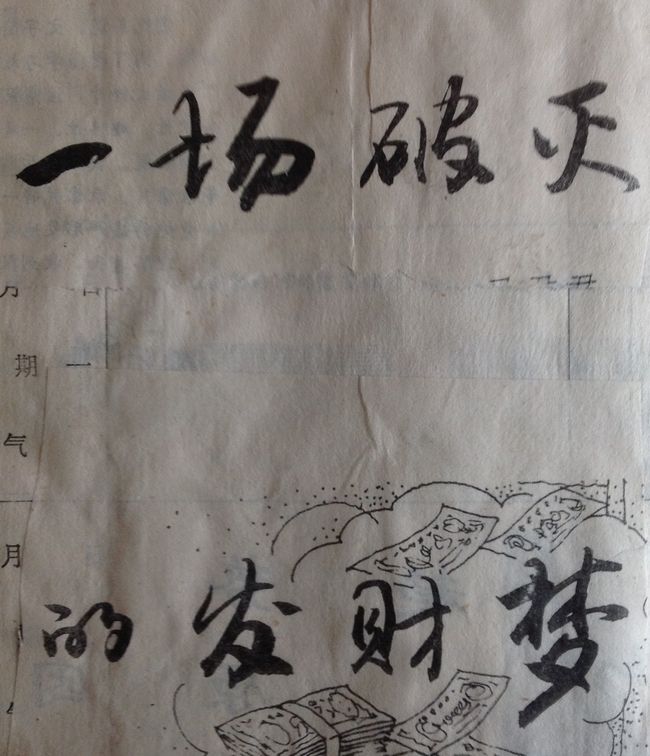 一场破灭
期一
气
月
的发财梦